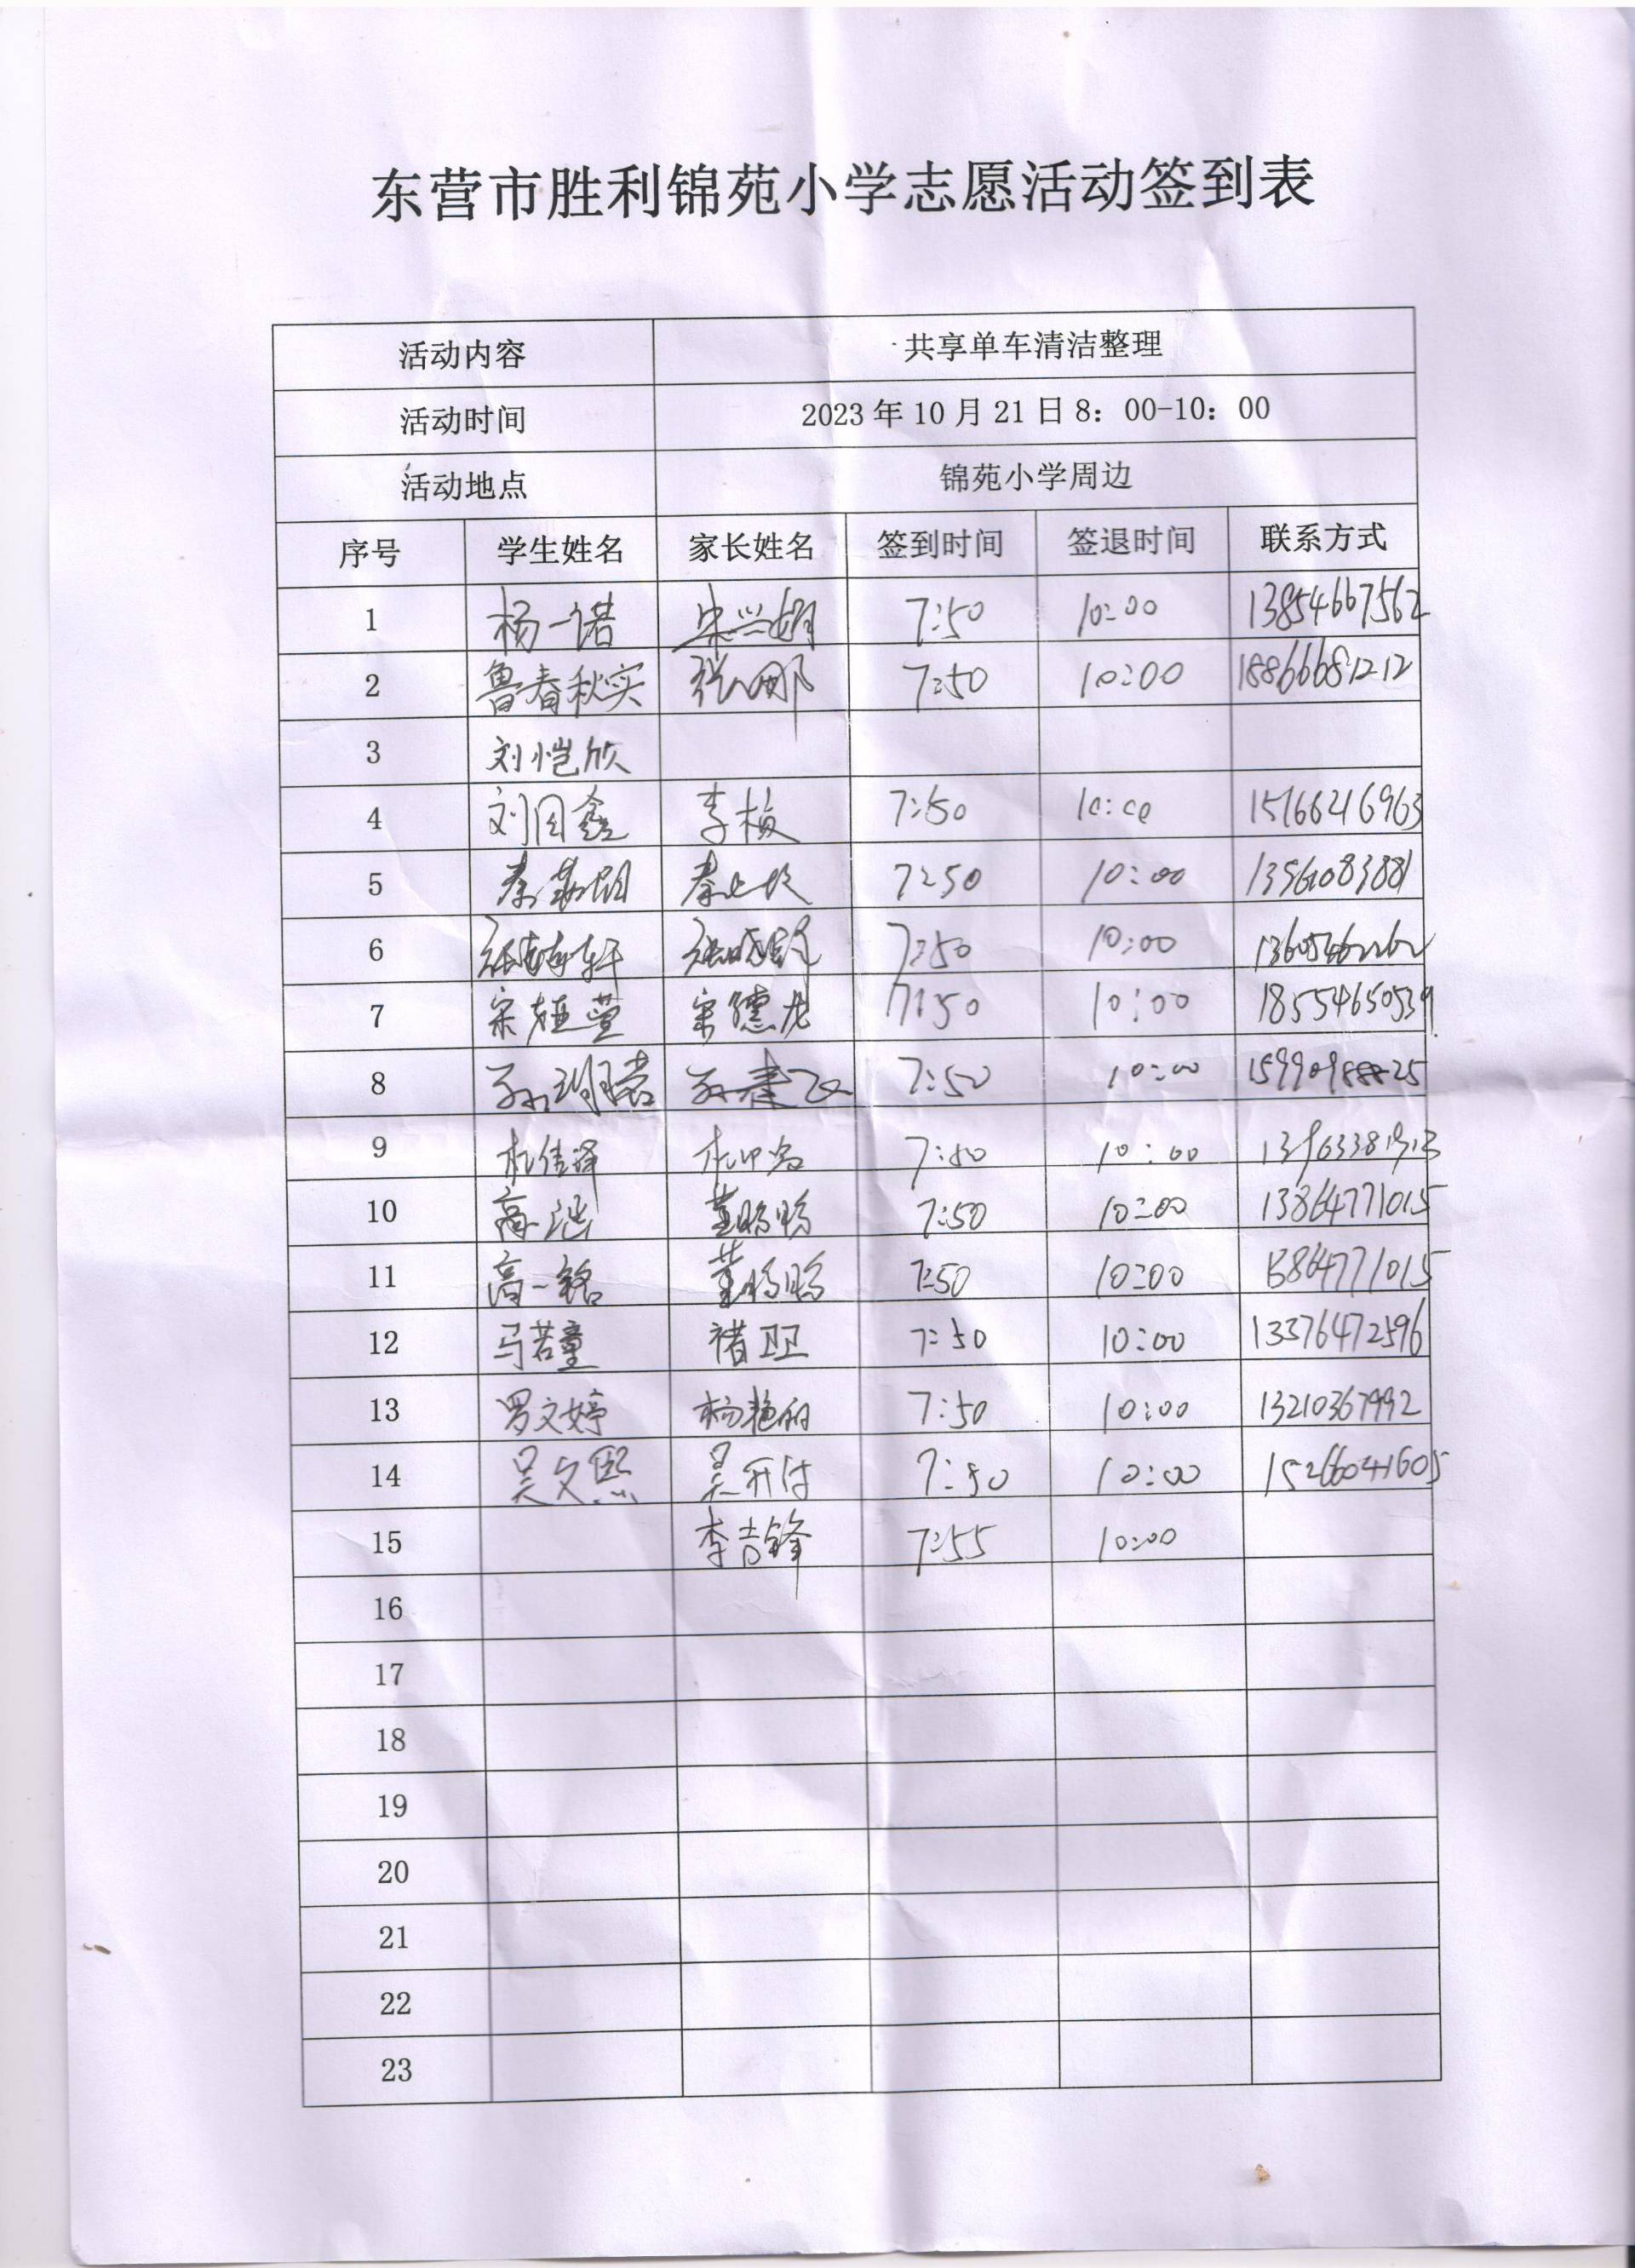 东营市胜利锦苑小学志愿活动签到表
活动内容 共享单车清洁整理
活动时间 2023年10月21日8：00-10：00
活动地点 锦苑小学周边
序号 学生姓名 家长姓名 签到时间 签退时间 联系方式
1 杨一诺 宋兴娟 7:50 10:00 13854667562
2 鲁春秋实 张娜 7:50 10:00 18866681212
3 刘恺欣
4 刘同鑫 李梅 7:50 10:00 15166216963
5 7:50 10:00
6 7:50 10:00
7 宋 宋德龙 7:50 10:00 18554650539
8 7:50 10:00
9 杜佳泽 7:50 10:00
10 高 7:50 10:00 13864771015
11 高一铭 7:50 10:00 13864771015
12 马若童 褚卫卫 7:50 10:00 13376472596
13 罗文婷 7:50 10:00 13210367992
14 吴文熙 7:50 10:00 15266041605
15 李吉锋 7:55 10:00
16
17
18
19
20
21
22
23